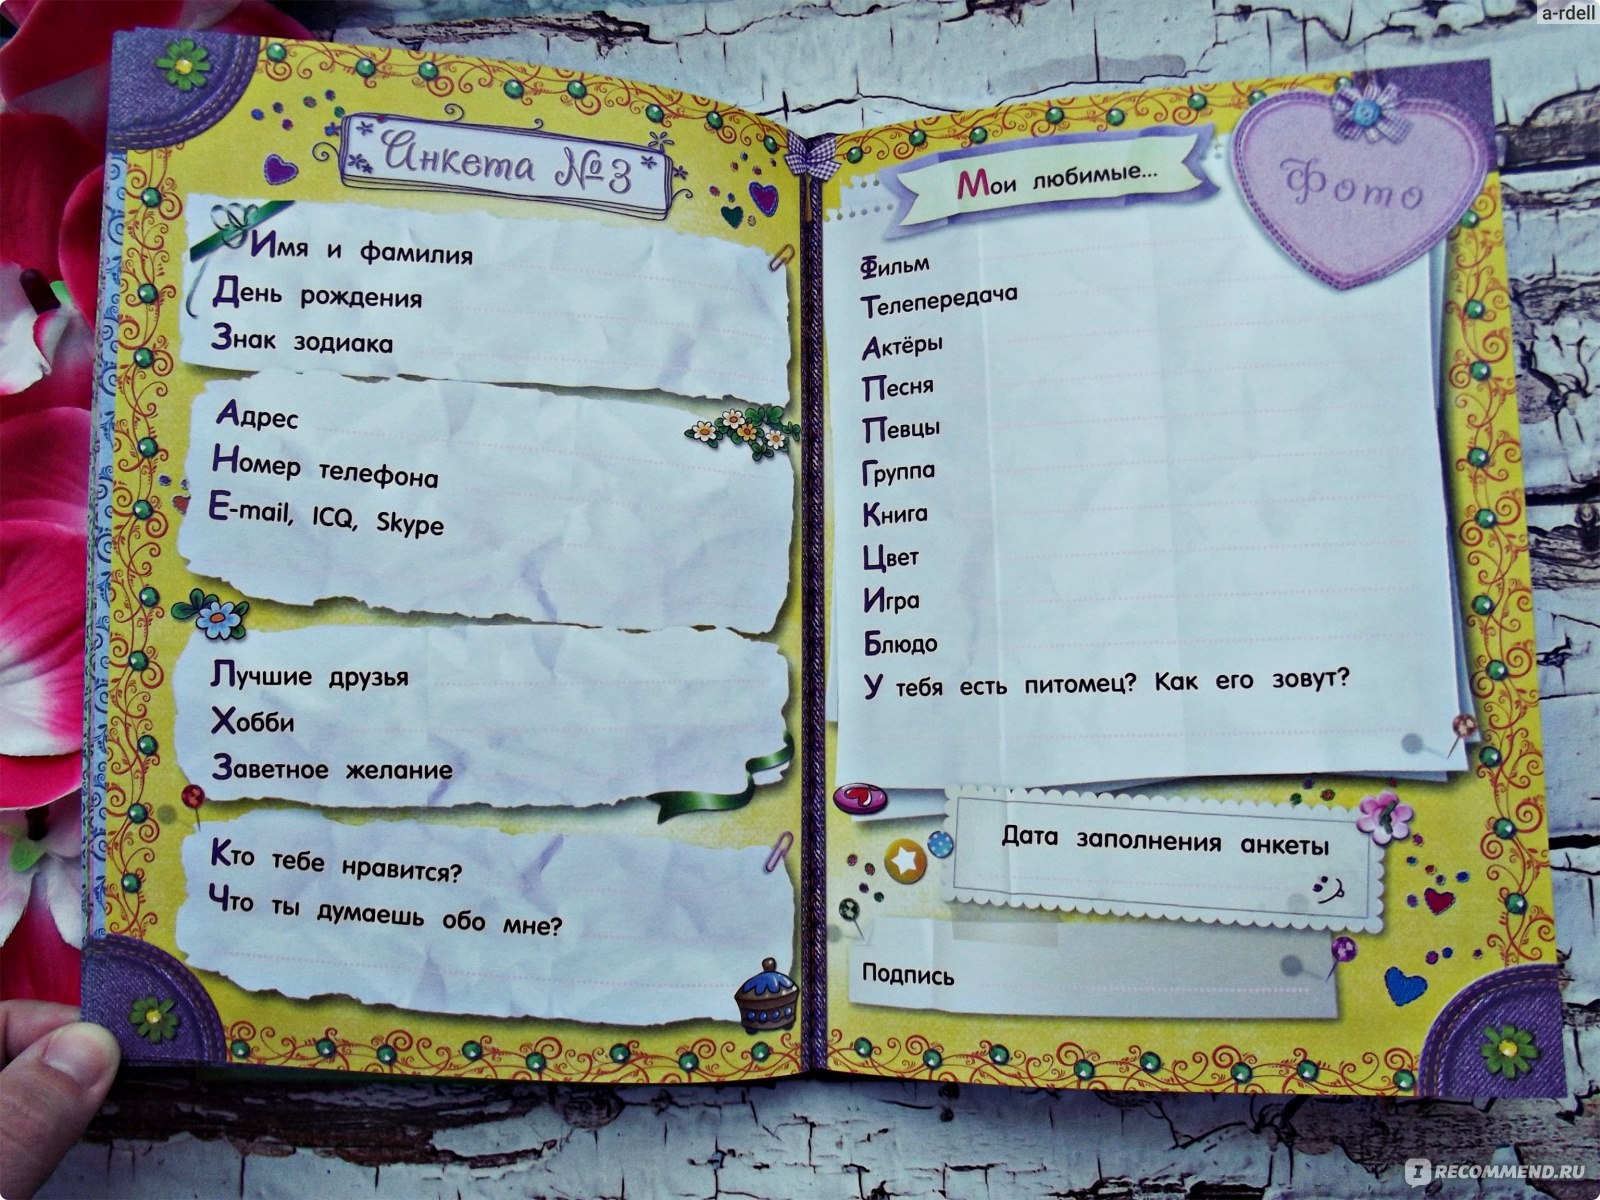 a-rdell
Анкета №3
Имя и фамилия
День рождения
Знак зодиака
Адрес
Номер телефона
E-mail, ICQ, Skype
Лучшие друзья
Хобби
Заветное желание
Кто тебе нравится?
Что ты думаешь обо мне?
Мои любимые...
Фото
Фильм
Телепередача
Актёры
Песня
Певцы
Группа
Книга
Цвет
Игра
Блюдо
У тебя есть питомец? Как его зовут?
Дата заполнения анкеты
Подпись
IRECOMMEND.RU